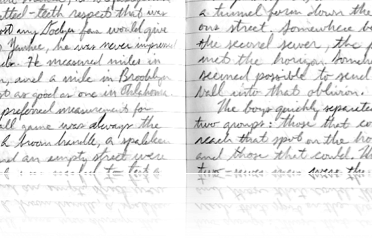 itted-teeth respect that was
ost any Dodger fan would give
Yankee, he was never impressed
He measured miles in
and a mile in Brooklyn
st as good as one in Oklahoma
preferred measurement for
ball game was always the
a broom handle, a spaldeen
and an empty street were
a tunnel form down the
ous street. Somewhere be
the second sewer, the p
met the horizon. Somewh
seemed possible to send
ball into that oblivion.
The boys quickly separated
two groups: those that co
reach that spot on the hor
and those that could. Th
two-sewer men were the